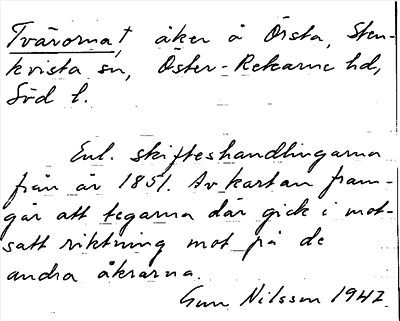 Tvärorna†, åker å Örsta, Sten-
kvista sn, Öster-Rekarne hd,
Söd l.
Enl. skifteshandlingarna
från år 1851. Av kartan fram-
går att tegarna där gick i mot-
satt riktning mot på de
andra åkrarna.
Gun Nilsson 1947.